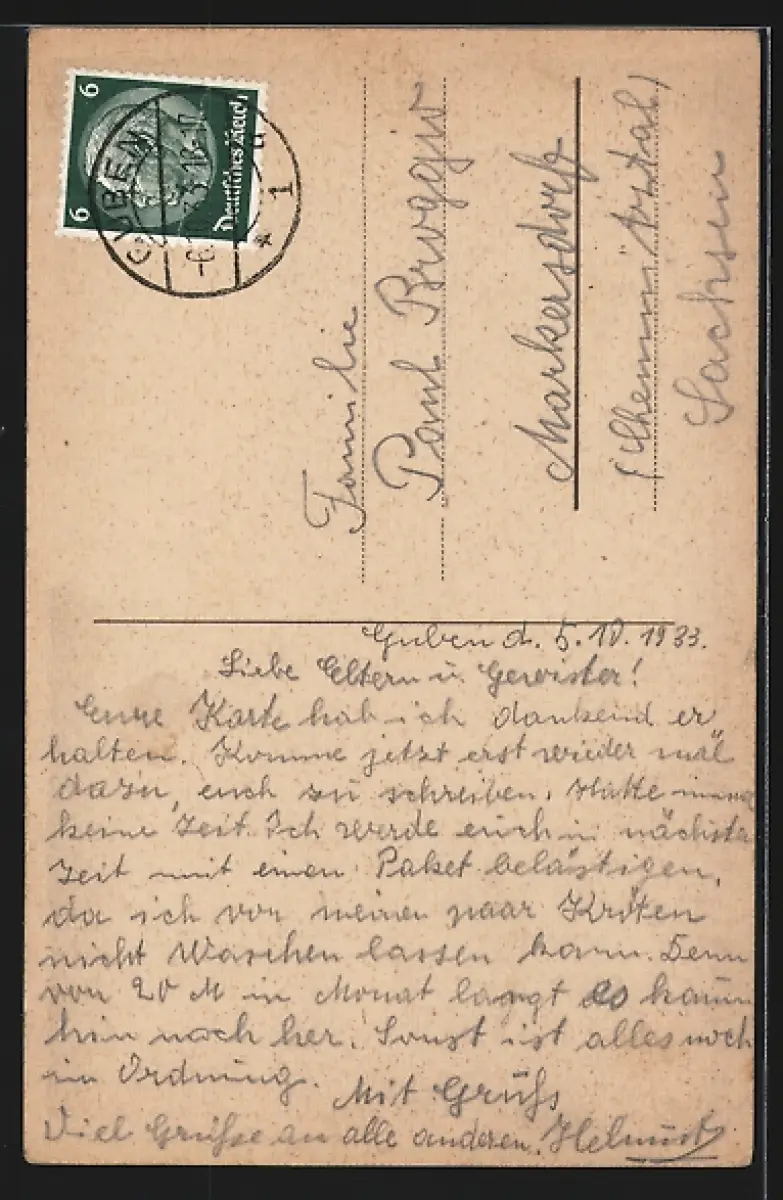 6
6
Deutsches Reich
GUBEN
1
Familie
Paul Broggio
Markersdorf
(Chemnitztal)
Sachsen
Guben d. 5.10.1933.
Liebe Eltern u. Gewister!
Eure Karte hab ich dankend er
halten. Komme jetzt erst wieder mal
dazu, euch zu schreiben. Hatte immer
keine Zeit. Ich werde euch in nächster
Zeit mit einen Paket belästigen,
da ich von meinen paar Kröten
nicht Waschen lassen kann. Denn
von 20 M in Monat langt es kaum
hin noch her. Sonst ist alles noch
in Ordnung. Mit Gruß
Viel Grüße an alle anderen. Helmut